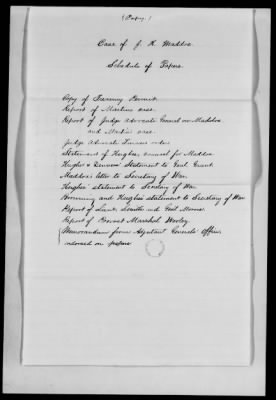 (Copy.)
Case of J. H. Maddox.
Schedule of Papers
Copy of Treasury Permit.
Report of Martin's case.
Report of Judge Advocate General on Maddox
and Martin case.
Judge Advocate Turner's notes
Statement of Hughes, counsel for Maddox.
Hughes & Denver's Statement to Genl. Grant.
Maddox's letter to Secretary of War.
Hughes' statement to Secretary of War.
Browning and Hughes' statement to Secretary of War
Report of Lieut. Smith and Genl. Morris.
Report of Provost Marshal Wooley.
Memorandum from Adjutant General's Office,
indorsed on papers